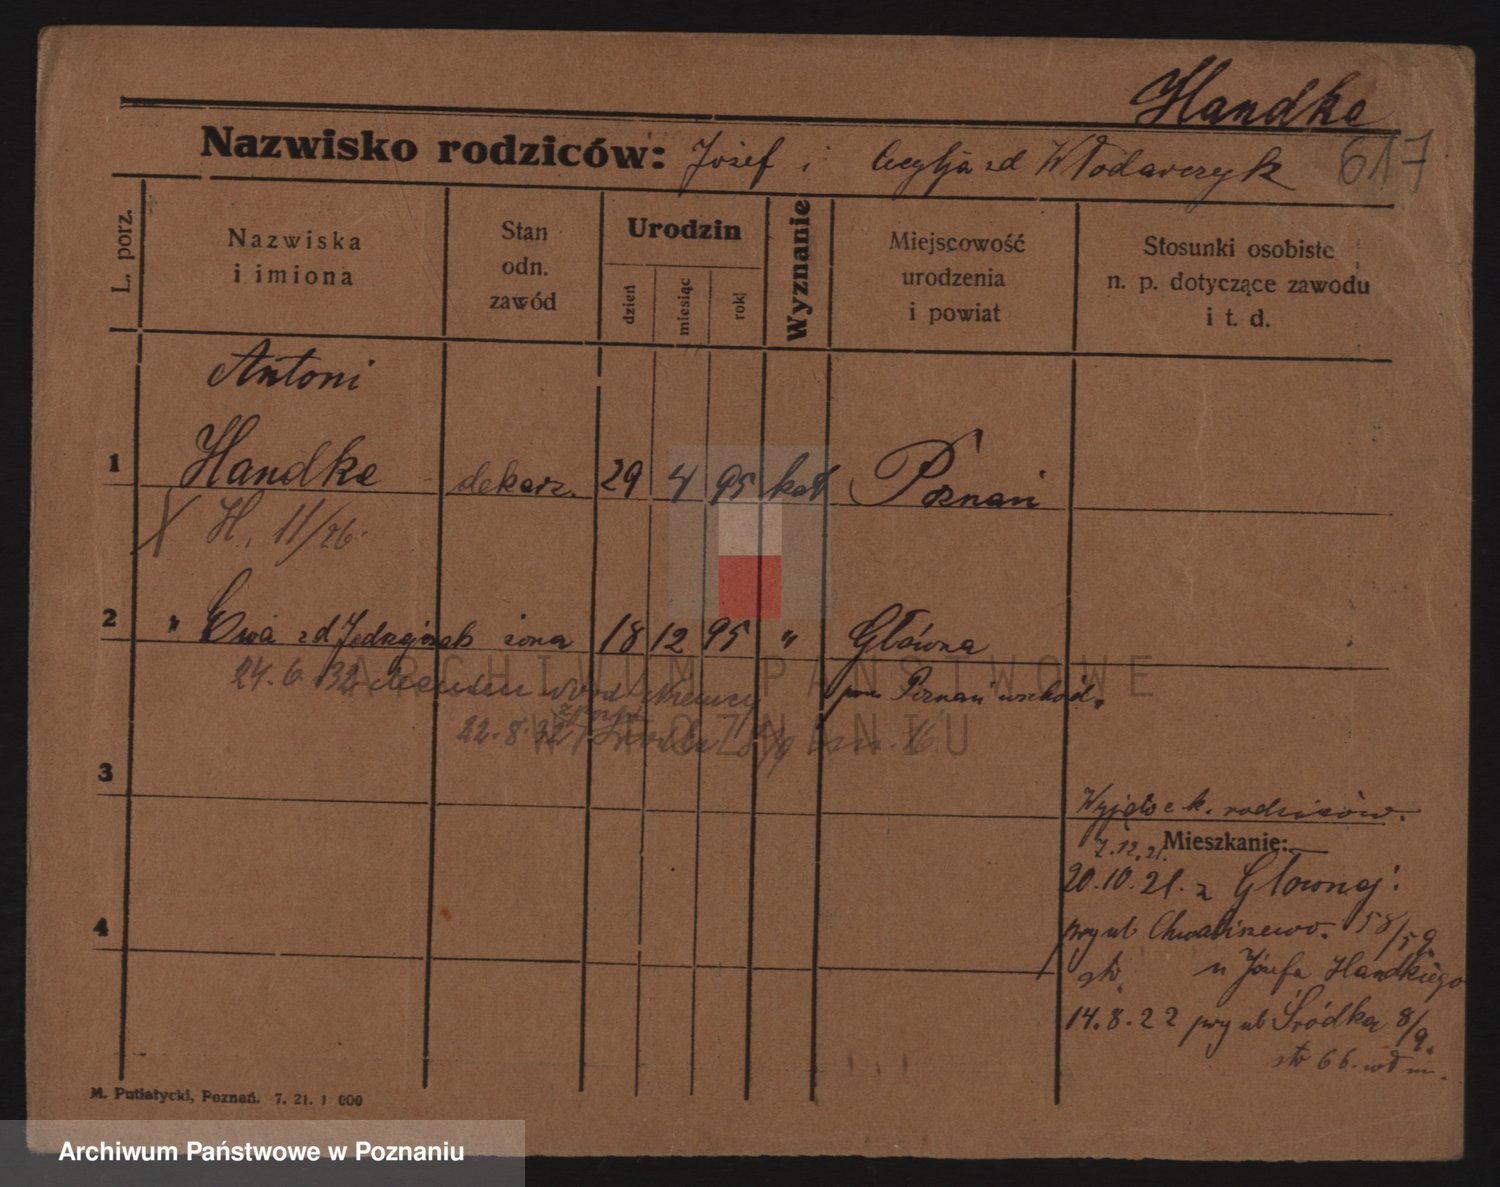 Handke
Nazwisko rodziców: Józef i Cecylja zd Włodarczyk 617
L. porz.
Nazwiska
i imiona
Stan
odn.
zawód
Urodzin
dzień
miesiąc
rok
Wyznanie
Miejscowość
urodzenia
i powiat
Stosunki osobiste
n. p. dotyczące zawodu
i t. d.
Antoni
1 Handke dekarz. 29 4 95 kat Poznań
H. 11/26.
2 " Ewa zd Jędrzejczak żona 18 12 95 " Główna
24. 6. 32 Niemcy pow Poznań wschód.
22. 8. 32 Śródka 8/9
ARCHIWUM PAŃSTWOWE
W POZNANIU
3
Wyjęto z k. rodziców.
7.12.21. Mieszkanie:
20.10.21. z Głównej:
4 przy ul Chwaliszewo. 58/59
str. u Józefa Handkiego
14.8.22 przy ul Śródka 8/9.
str 66. wł m.
M. Putiatycki, Poznań. 7. 21. 1 000
Archiwum Państwowe w Poznaniu